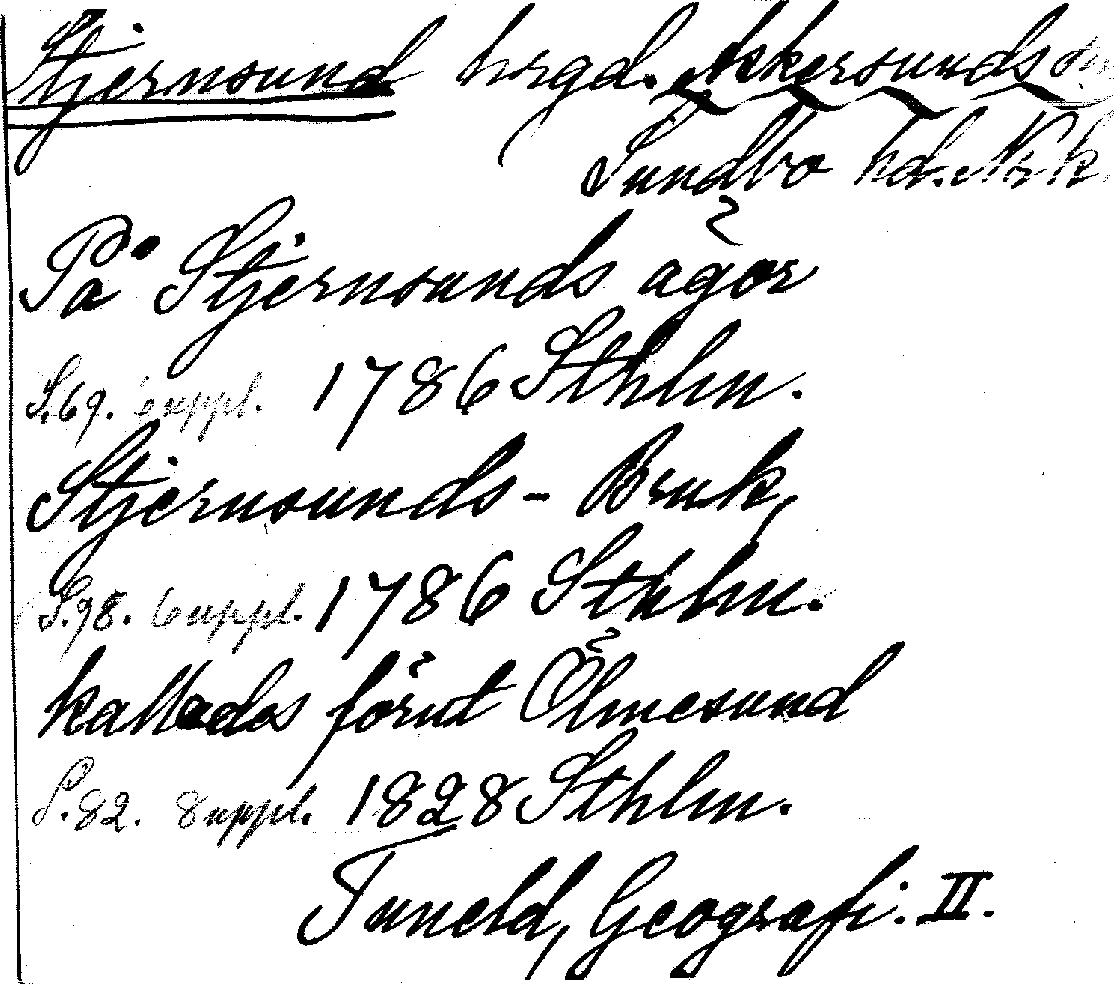 Stjernsund hrgd. Askersunds sn
Sundbo hd. Nrk.
På Stjernsunds ägor
S.69. 6 uppl. 1786 Sthlm.
Stjernsunds-Bruk,
S.98. 6 uppl. 1786 Sthlm.
kallades förut Ölmesund
S.82. 8 uppl. 1828 Sthlm.
Tuneld, Geografi. II.